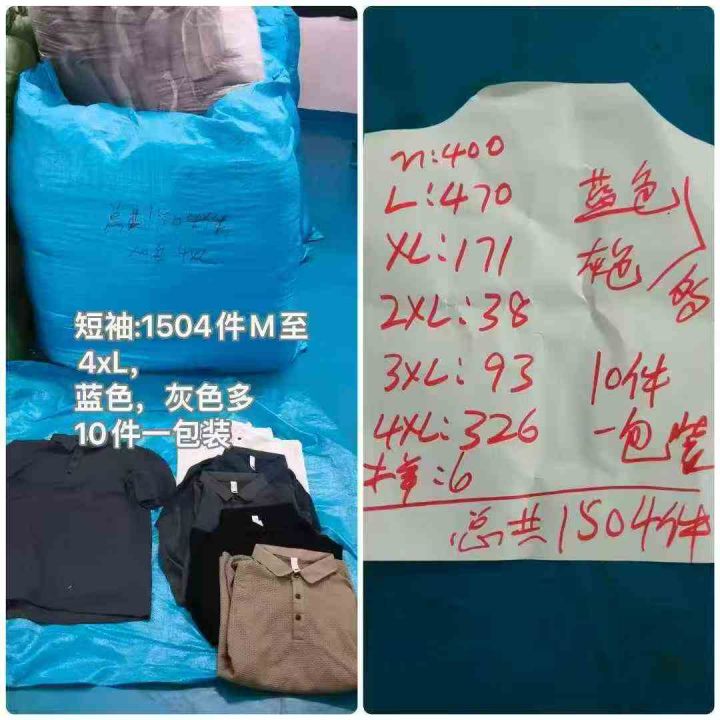 短袖:1504件M至
4xL,
蓝色，灰色多
10件一包装
M:400
L:470
XL:171
2XL:38
3XL:93
4XL:326
样:6
蓝色
灰色
多
10件
一包装
总共1504件